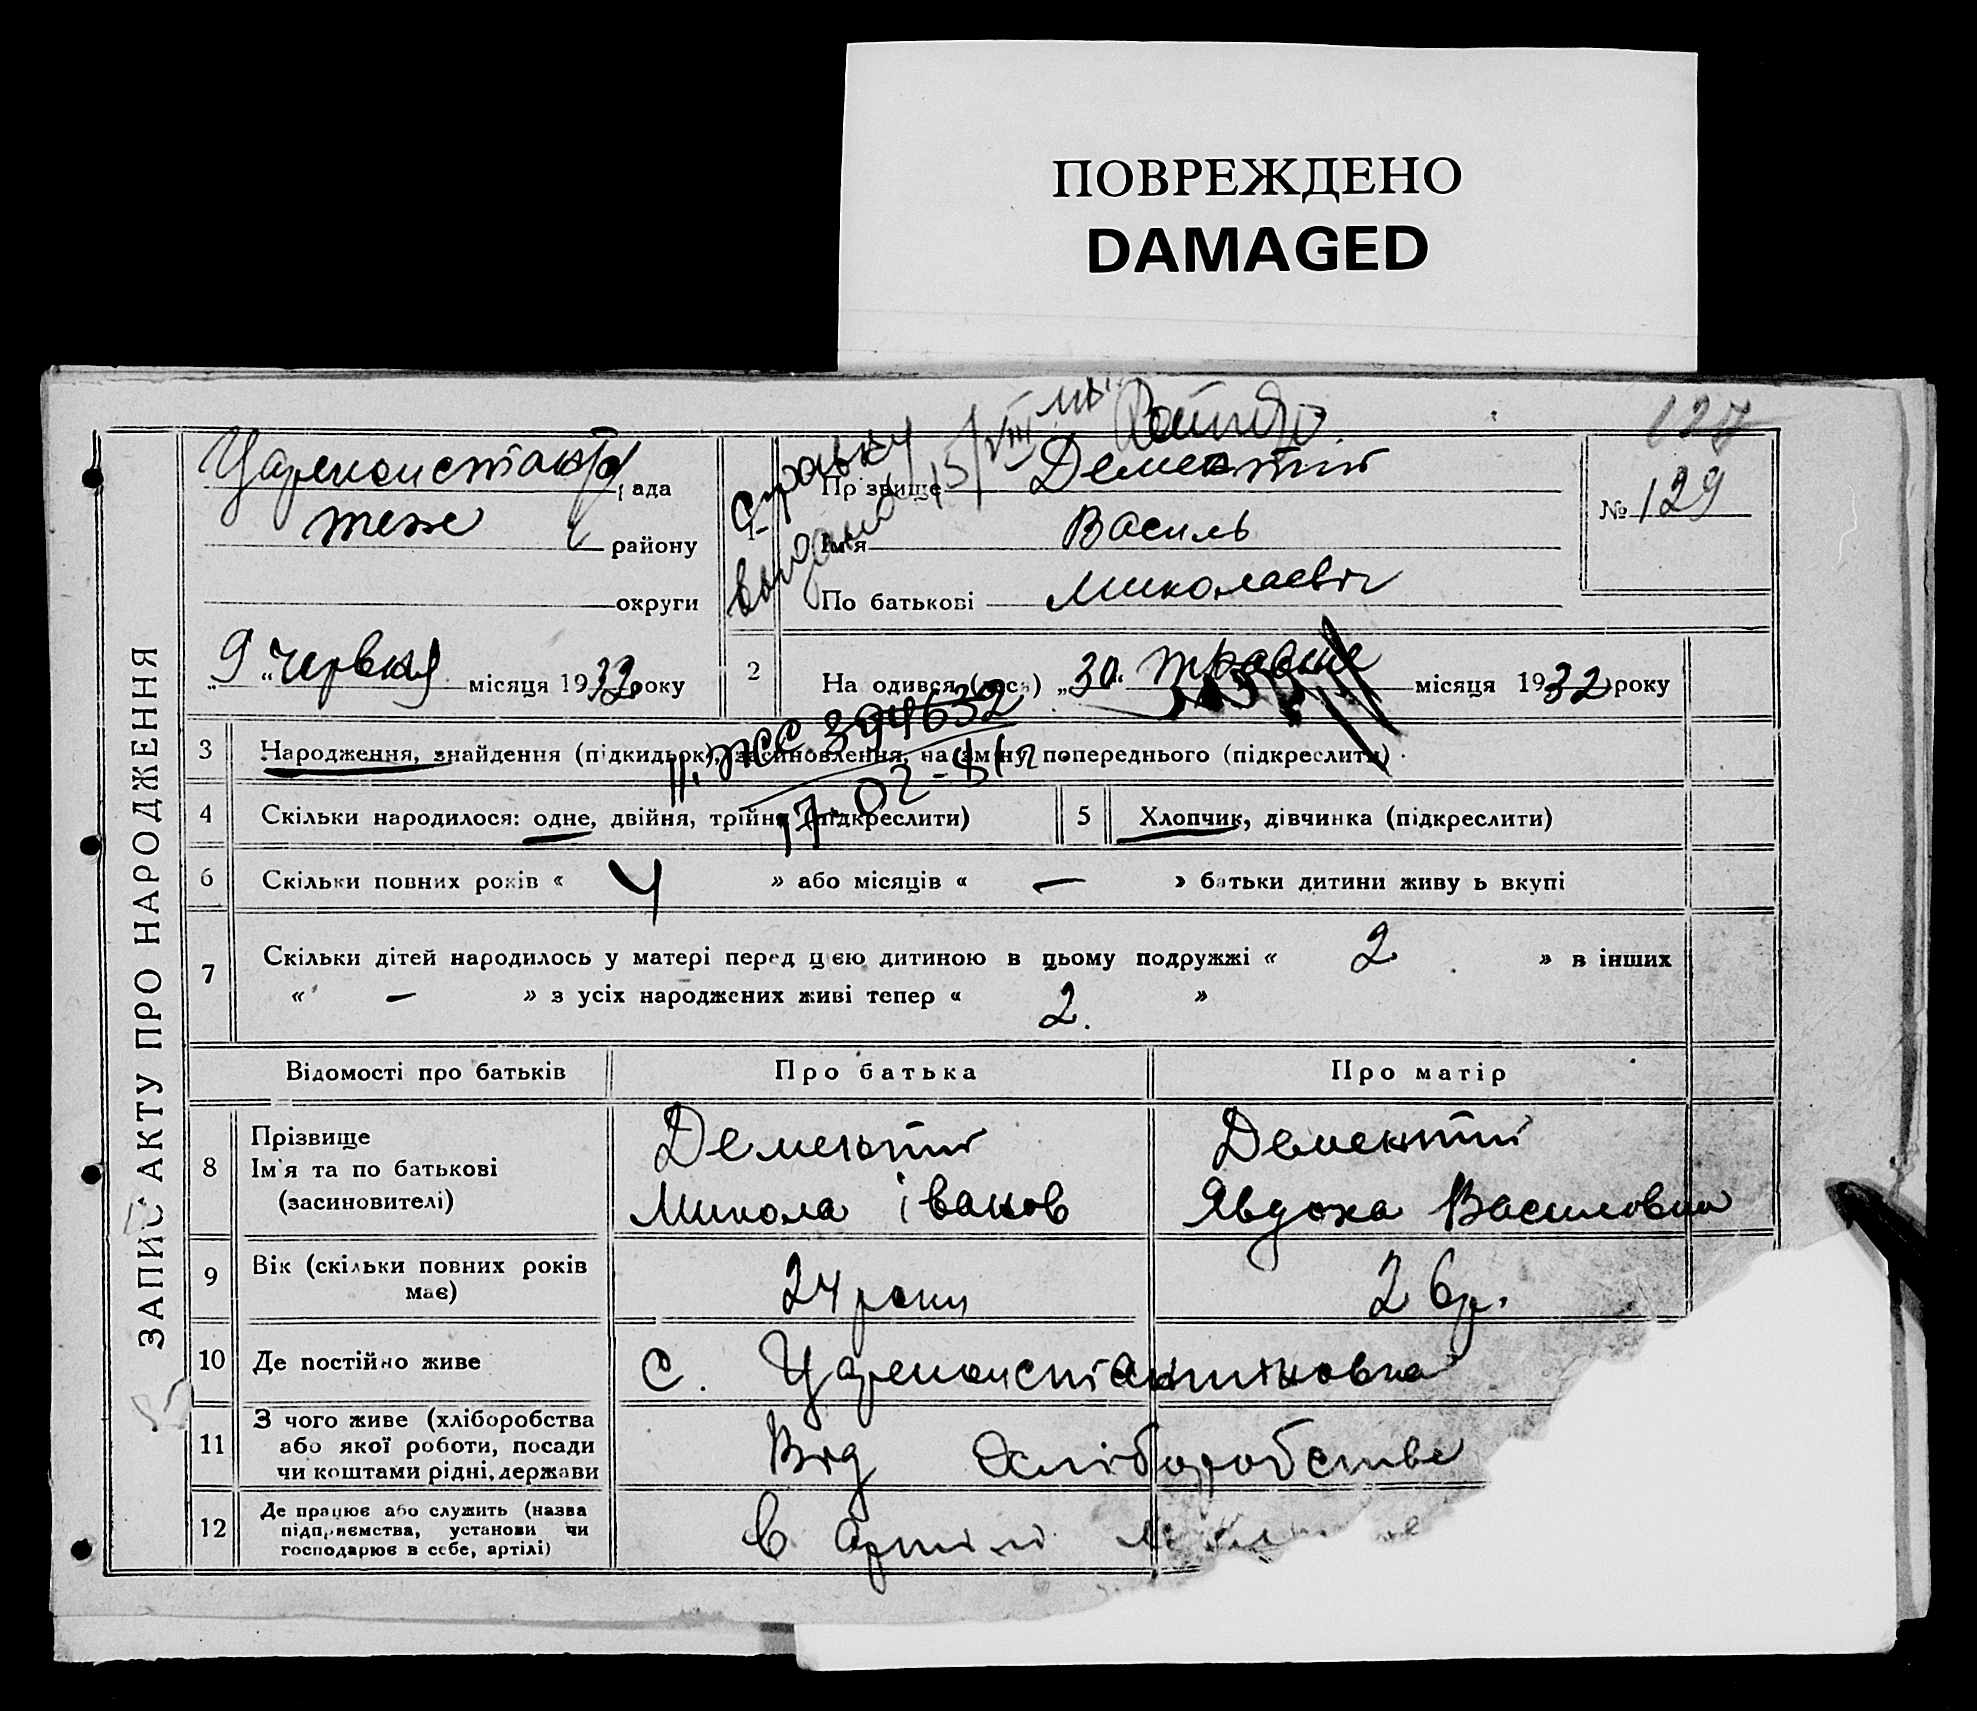 ПОВРЕЖДЕНО
DAMAGED
127
ЗАПИС АКТУ ПРО НАРОДЖЕННЯ
Цареконстант рада
теж району
округи
„9“ червня місяця 1932 року
Справку
видано 15/VIII
1 Прізвище Дементій
Ім'я Василь
По батькові Миколаевіч
№ 129
2 На одився (лася) „30“ травня місяця 1932 року
II ЖС 394632
17-02-
3 Народження, знайдення (підкидьок), засиновлення, на зміну попереднього (підкреслити)
4 Скільки народилося: одне, двійня, трійня (підкреслити)
5 Хлопчик, дівчинка (підкреслити)
6 Скільки повних років « 4 » або місяців « — » батьки дитини живу ь вкупі
7 Скільки дітей народилось у матері перед цією дитиною в цьому подружжі « 2 » в інших
« — » з усіх народжених живі тепер « 2. »
Відомості про батьків Про батька Про матір
8 Прізвище
Ім'я та по батькові
(засиновителі)
Дементій
Микола Іванов
Дементій
Явдоха Василовна
9 Вік (скільки повних років
має)
24 роки
26 р.
10 Де постійно живе
с. Цареконстантіновка
11 З чого живе (хліборобства
або якої роботи, посади
чи коштами рідні, держави
Від хліборобства
12 Де працює або служить (назва
підприємства, установи чи
господарює в себе, артілі)
в артілі